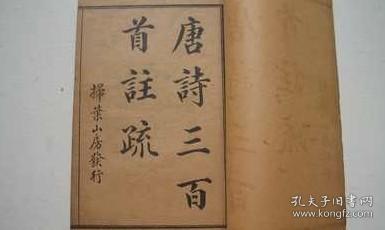 唐詩三百
首註疏
掃葉山房發行
孔夫子旧书网